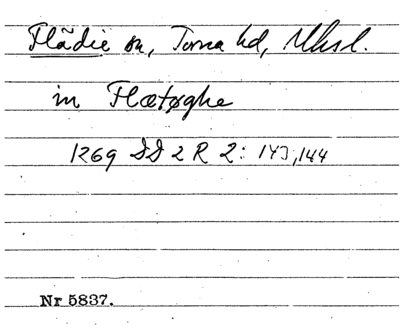 Flädie sn, Torna hd, Mhsl.
in Flætøghe
1269 DD 2 R 2: 143, 144
Nr 5837.